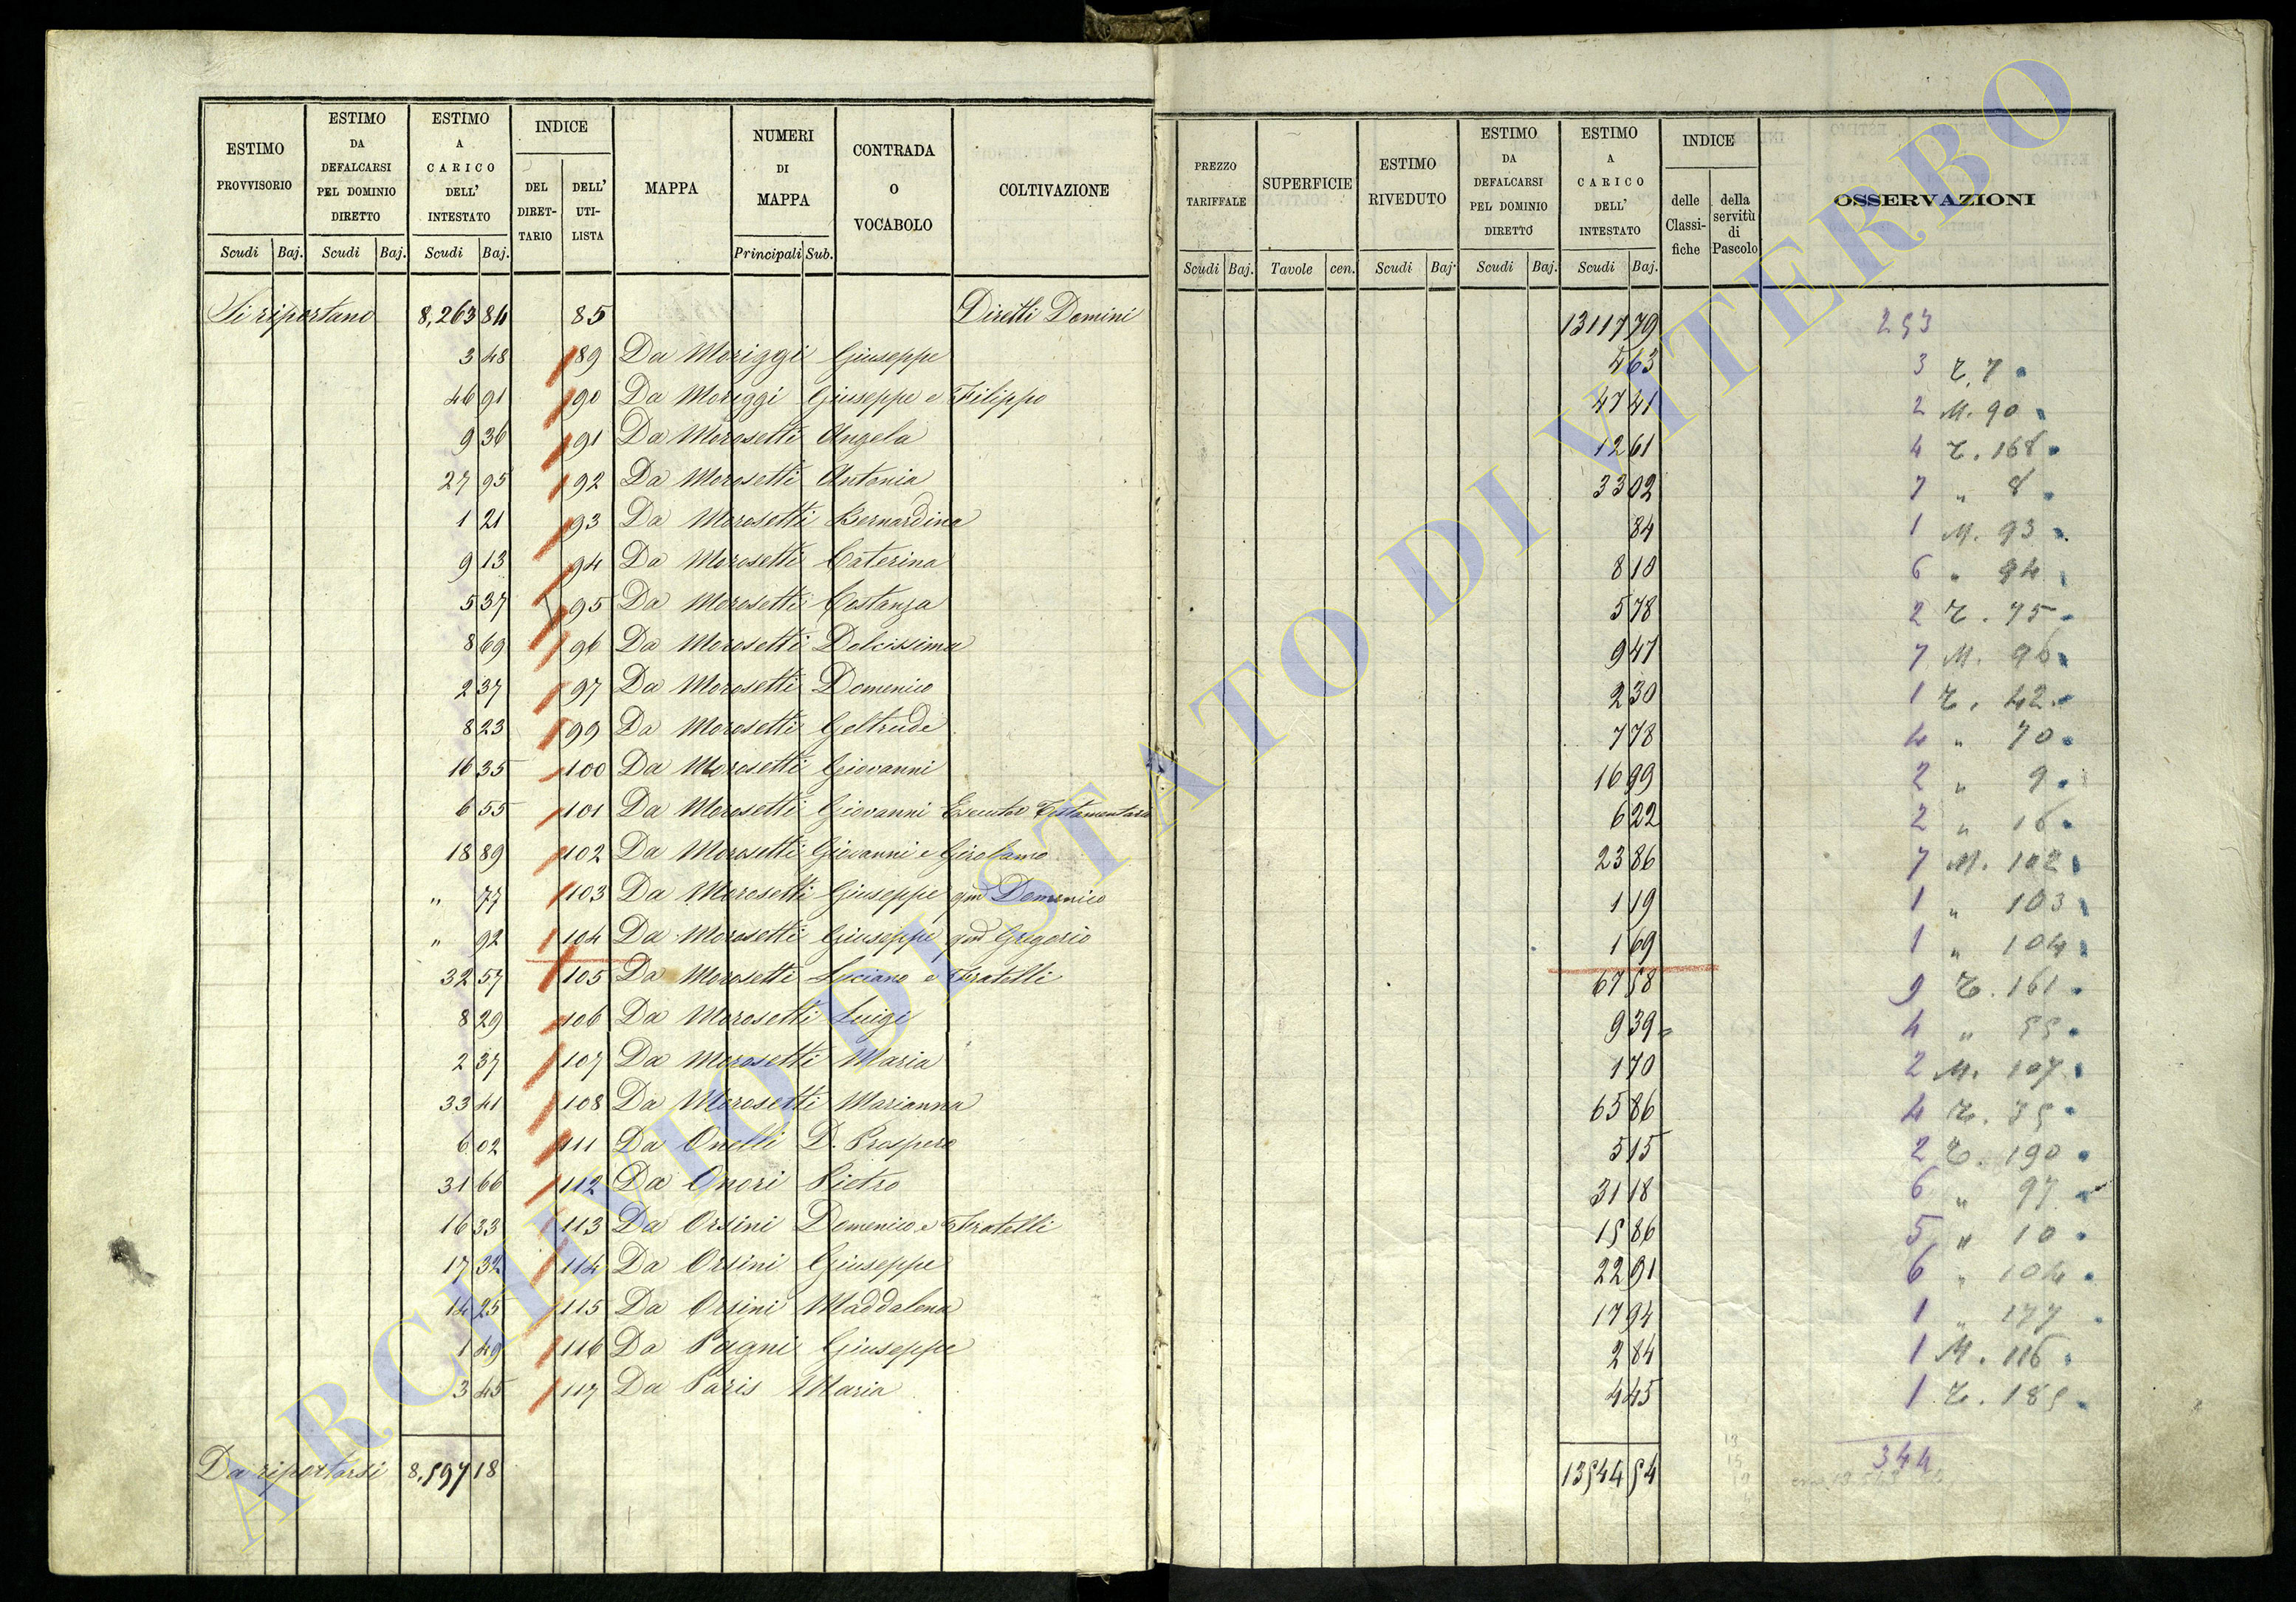 ESTIMO PROVVISORIO | ESTIMO DA DEFALCARSI PEL DOMINIO DIRETTO | ESTIMO A CARICO DELL' INTESTATO | INDICE | MAPPA | NUMERI DI MAPPA | CONTRADA O VOCABOLO | COLTIVAZIONE | PREZZO TARIFFALE | SUPERFICIE | ESTIMO RIVEDUTO | ESTIMO DA DEFALCARSI PEL DOMINIO DIRETTO | ESTIMO A CARICO DELL' INTESTATO | INDICE | OSSERVAZIONI
DEL DIRET-TARIO | DELL' UTI-LISTA | delle Classi-fiche | della servitù di Pascolo
Scudi Baj. | Scudi Baj. | Scudi Baj. | Principali Sub. | Scudi Baj. | Tavole cen. | Scudi Baj. | Scudi Baj. | Scudi Baj.
Si riportano 8,263 84 85 Diretti Domini 13117 79 253
3 48 89 Da Moriggi Giuseppe 4 63 3 T. 7
46 91 90 Da Moriggi Giuseppe e Filippo 47 41 2 M. 90
9 36 91 Da Morosetti Angela 12 61 4 T. 168
27 95 92 Da Morosetti Antonia 33 02 7 " 8
1 21 93 Da Morosetti Bernardina 84 1 M. 93
9 13 94 Da Morosetti Caterina 8 10 6 " 94
5 37 95 Da Morosetti Costanza 5 78 2 T. 75
8 69 96 Da Morosetti Dolcissima 9 47 7 M. 96
2 37 97 Da Morosetti Domenico 2 30 1 T. 42
8 23 99 Da Morosetti Geltrude 7 78 4 " 70
16 35 100 Da Morosetti Giovanni 16 99 2 " 9
6 55 101 Da Morosetti Giovanni Esecutor Testamentario 6 22 2 " 16
18 89 102 Da Morosetti Giovanni e Girolamo 23 86 7 M. 102
" 77 103 Da Morosetti Giuseppe qm Domenico 1 19 1 " 103
" 92 104 Da Morosetti Giuseppe qm Gregorio 1 69 1 " 104
32 57 105 Da Morosetti Luciano e Fratelli 67 58 9 T. 161
8 29 106 Da Morosetti Luigi 9 39 4 " 55
2 37 107 Da Morosetti Maria 1 70 2 M. 107
33 41 108 Da Morosetti Marianna 65 86 4 T. 35
6 02 111 Da Onelli D. Prospero 5 15 2 T. 190
31 66 112 Da Onori Pietro 31 18 6 " 97
16 33 113 Da Orsini Domenico e Fratelli 15 86 5 " 10
17 32 114 Da Orsini Giuseppe 22 91 6 " 104
14 25 115 Da Orsini Maddalena 17 94 1 " 177
1 49 116 Da Pagni Giuseppe 2 84 1 M. 116
3 45 117 Da Paris Maria 4 45 1 T. 185
Da riportarsi 8,597 18 13544 54 344
ARCHIVIO DI STATO DI VITERBO